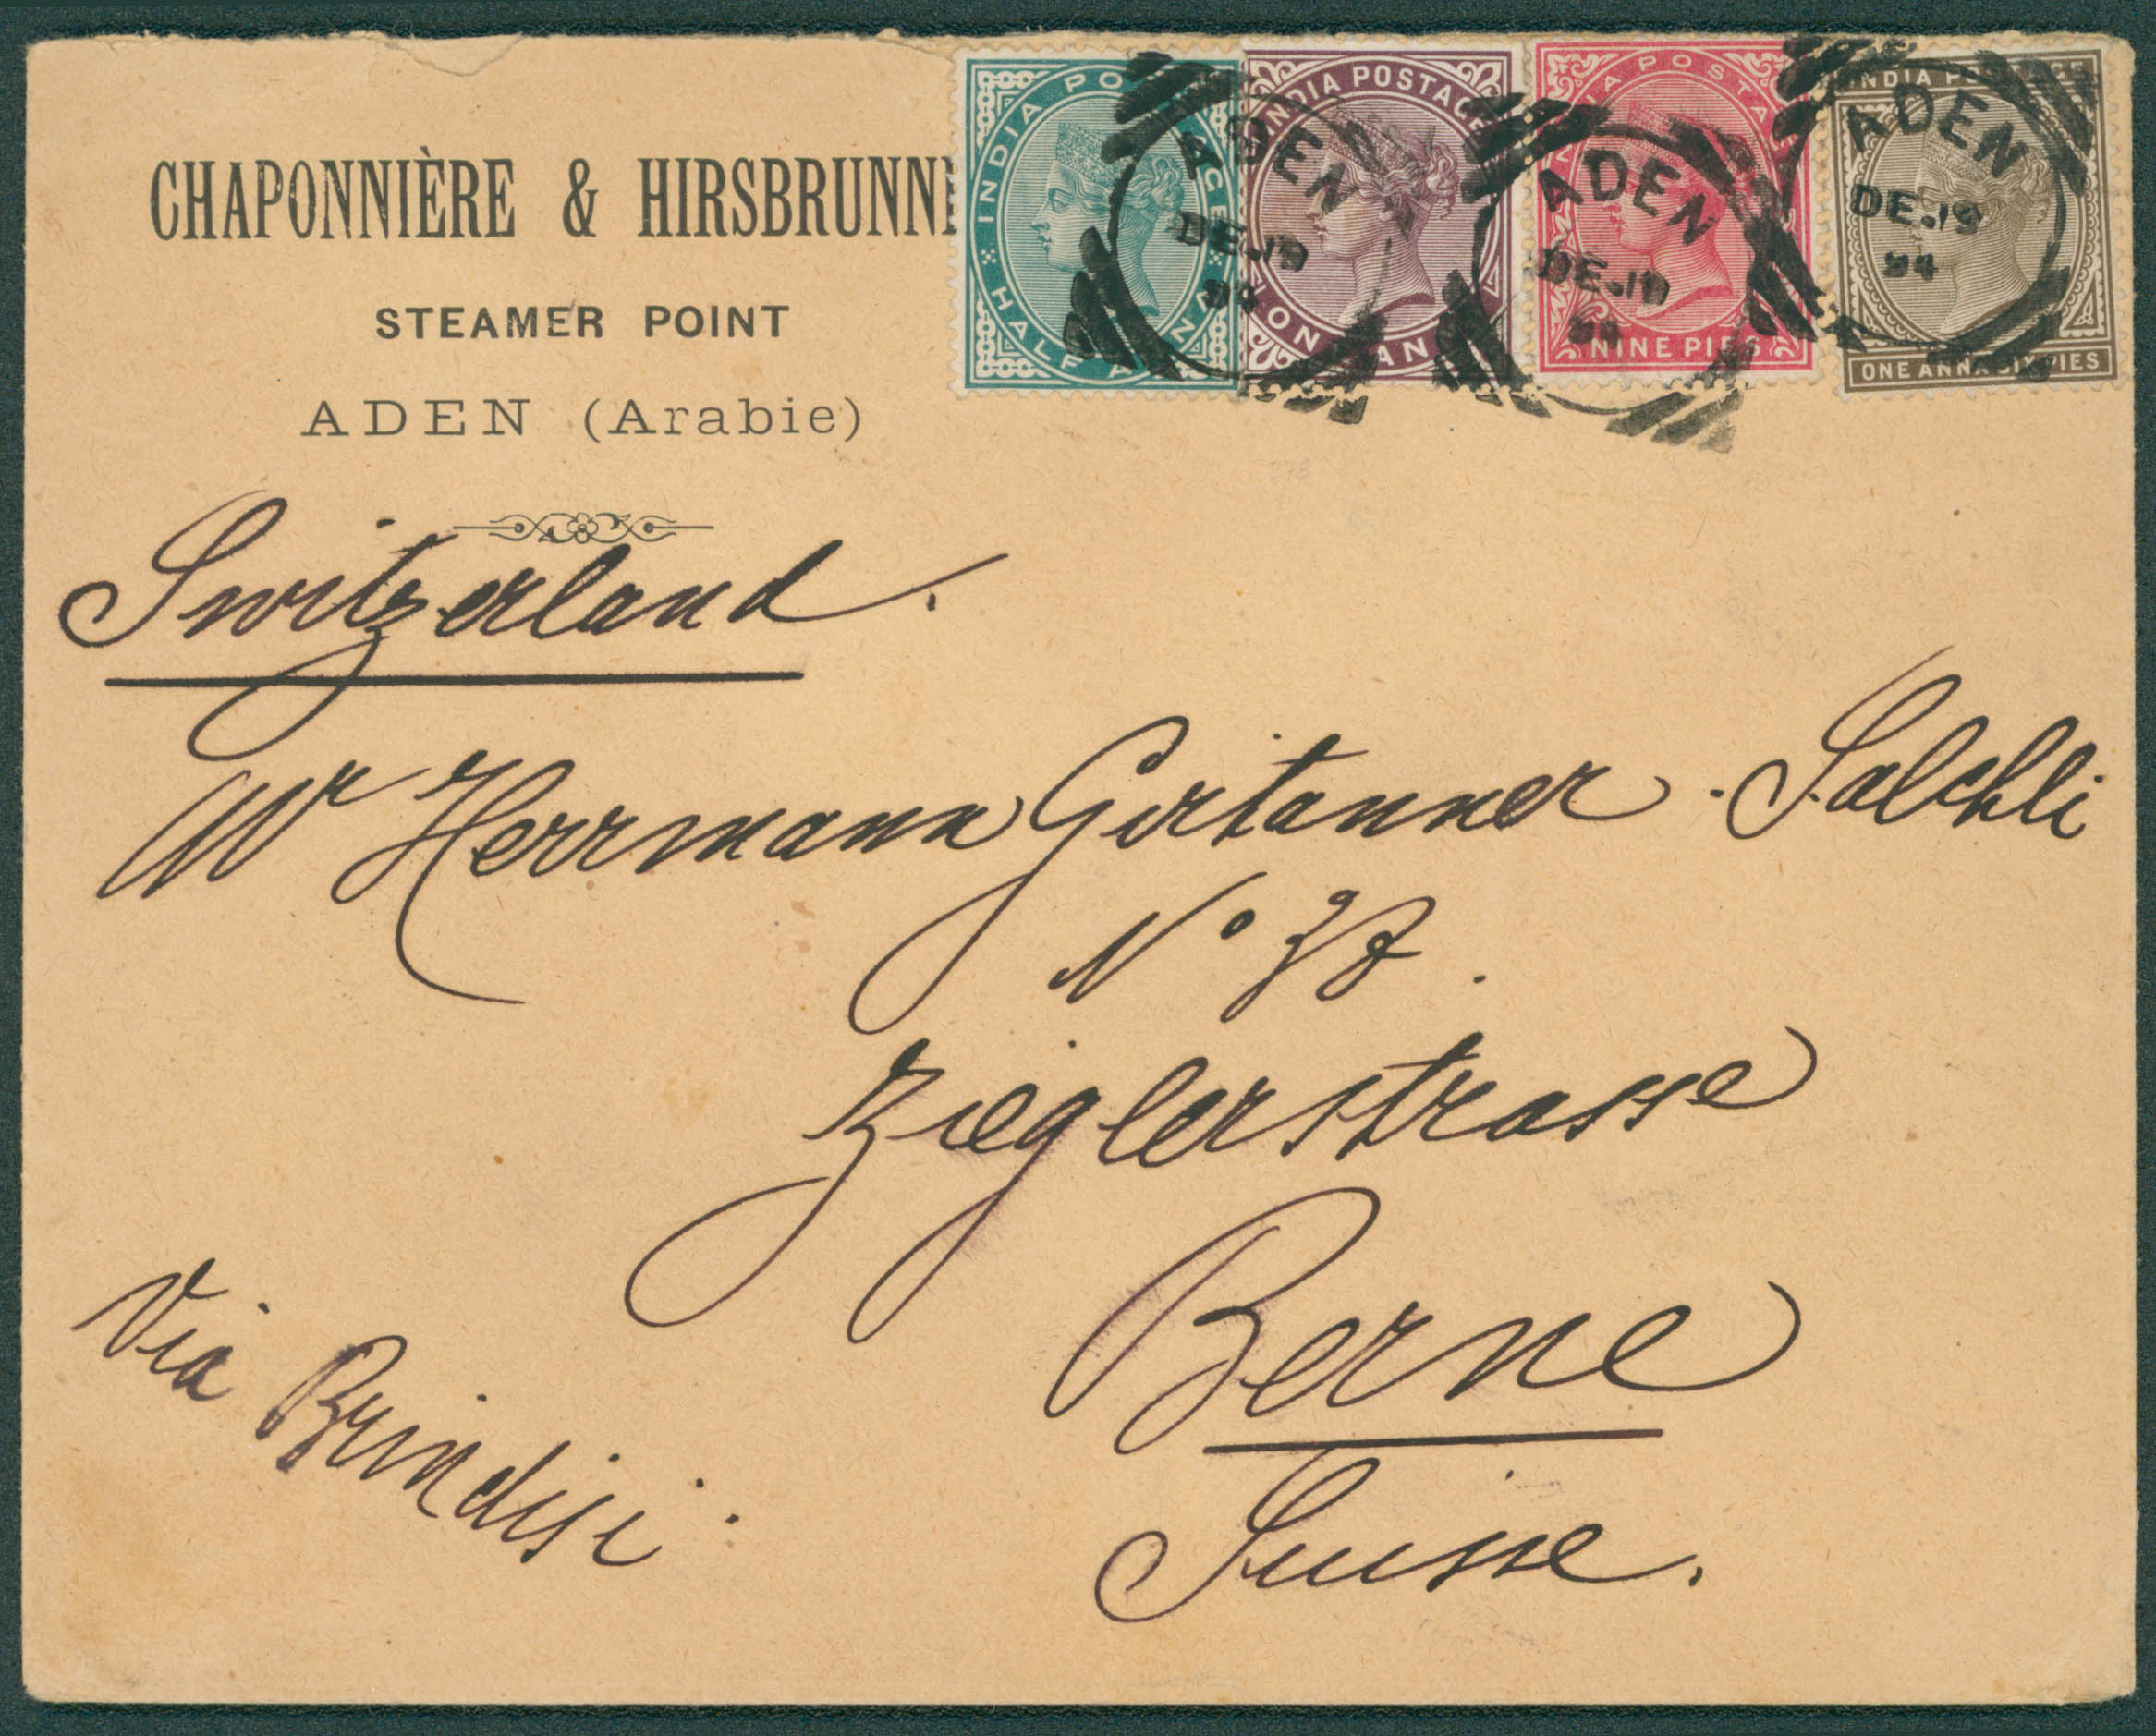 CHAPONNIÈRE & HIRSBRUNN
STEAMER POINT
ADEN (Arabie)
INDIA PO GE
HALF A N
INDIA POSTAGE
ON AN
IA POSTA
NINE PIES
INDIA POSTAGE
ONE ANNA SIX PIES
ADEN
DE.19
94
ADEN
DE.19
94
ADEN
DE.19
94
Switzerland.
Mr Herrmann Girtanner-Salchli
No 37.
Zieglerstrasse
Berne
Suisse.
Via Brindisi.